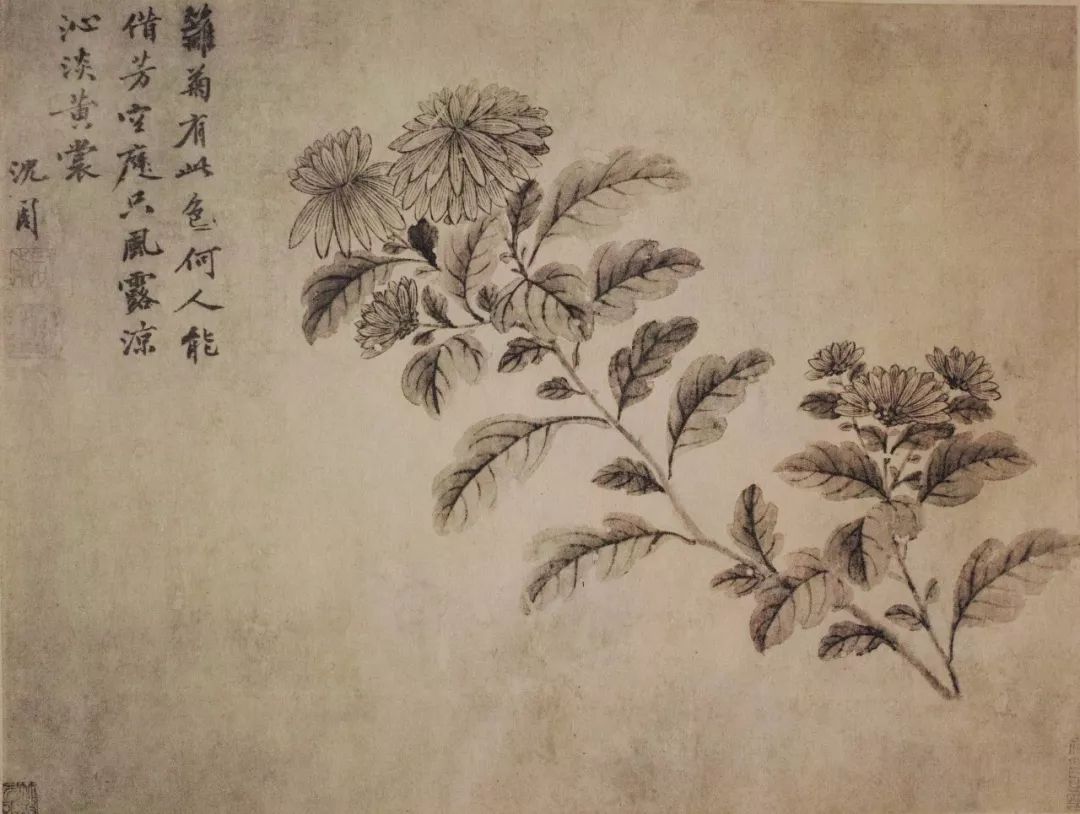 籬菊有此色何人能
借芳空庭只風露涼
沁淡黄裳
沈周